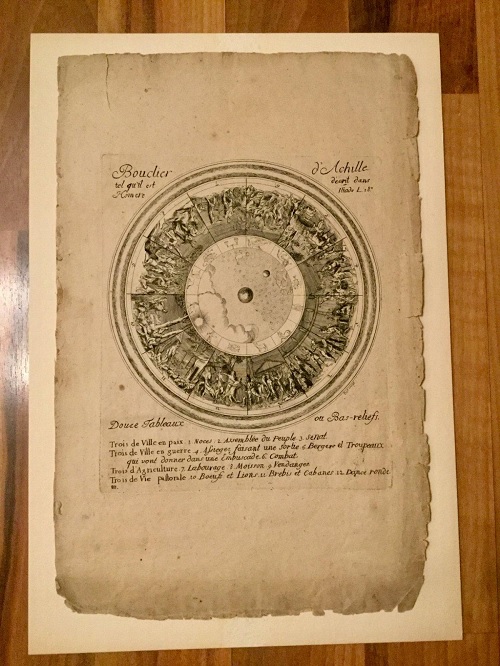 Bouclier d'Achille
tel qu'il est decrit dans
Homere Iliade L. 18e
Douze Tableaux ou Bas-reliefs.
Trois de Ville en paix 1 Noces. 2 Assemblée du Peuple 3. Senat.
Trois de Ville en guerre 4. Assiegez faisant une sortie 5 Bergers et Troupeaux
qui vont donner dans une Embuscade. 6. Combat.
Trois d'Agriculture 7. Labourage 8. Moisson 9 Vendanges
Trois de Vie pastorale 10 Boeufs et Lions. 11 Brebis et Cabanes .12. Danse ronde